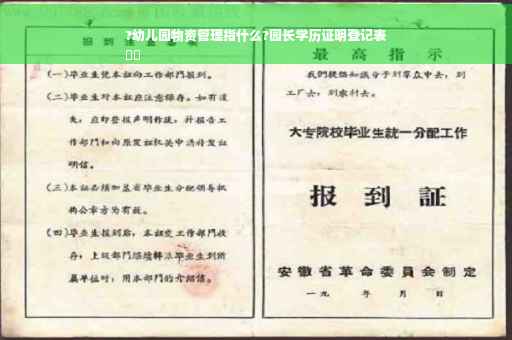 ?幼儿园物资管理指什么?园长学历证明登记表
报到注意事项
(一)毕业生凭本证向工作部门报到。
(二)毕业生对本证应注意保存。如有遗
失,应即登报声明作废,并报告工
作部门和向原发证机关申请补发证
明信。
(三)本证必须加盖省毕业生分配领导机
构公章方为有效。
(四)毕业生报到后,本证交工作部门收
存;上级部门继续转派毕业生到所
属单位时,用本部门的介绍信。
最高指示
我们提倡知识分子到群众中去,到
工厂去,到农村去。
大专院校毕业生统一分配工作
报到证
安徽省革命委员会制定
一九 年 月 日